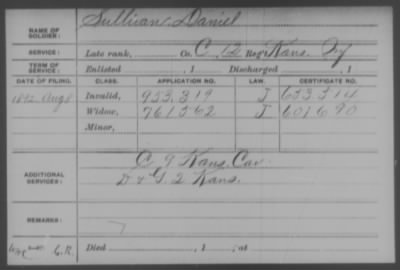 NAME OF SOLDIER: Sullivan, Daniel
SERVICE: Late rank, Co. C, 12 Reg't Kans. Inf
TERM OF SERVICE: Enlisted , 1 Discharged , 1
DATE OF FILING. CLASS. APPLICATION NO. LAW. CERTIFICATE NO.
1892 Aug 8 Invalid, 953,819 J 633514
Widow, 761362 J 601690
Minor,
ADDITIONAL SERVICES: C 9 Kans. Cav
D & G. 2 Kans.
REMARKS:
C.R. Died , 1 , at